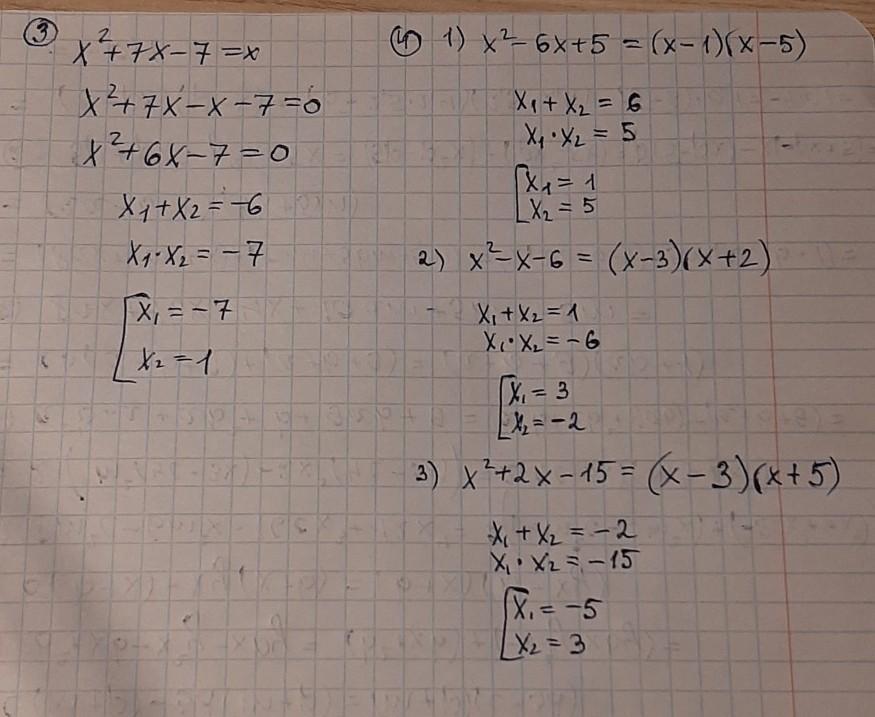 ③
x²+7x-7=x
x²+7x-x-7=0
x²+6x-7=0
x₁+x₂=-6
x₁·x₂=-7
[x₁=-7
x₂=1
④ 1) x²-6x+5=(x-1)(x-5)
x₁+x₂=6
x₁·x₂=5
[x₁=1
x₂=5
2) x²-x-6=(x-3)(x+2)
x₁+x₂=1
x₁·x₂=-6
[x₁=3
x₂=-2
3) x²+2x-15=(x-3)(x+5)
x₁+x₂=-2
x₁·x₂=-15
[x₁=-5
x₂=3